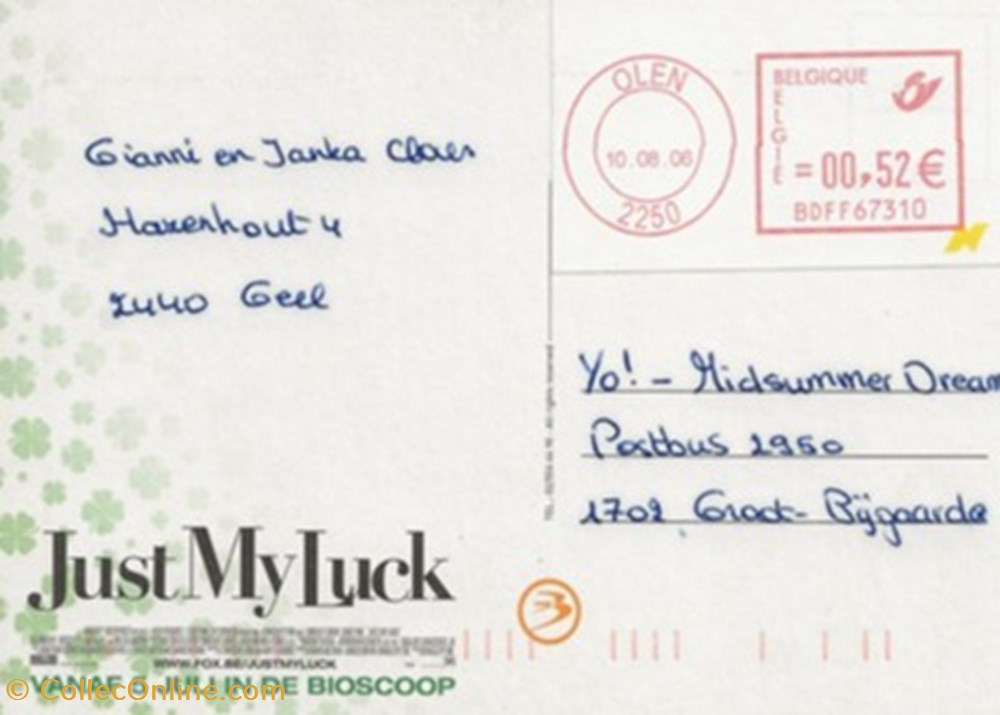 Gianni en Janka Claes
Hazenhout 4
2440 Geel
OLEN
10.08.06
2250
BELGIQUE
BELGIE
= 00,52 €
BDFF67310
Yo! - Midsummer Dream
Postbus 2950
1702 Groot-Bijgaarde
Just My Luck
WWW.FOX.BE/JUSTMYLUCK
VANAF 5 JULI IN DE BIOSCOOP
© CollecOnline.com